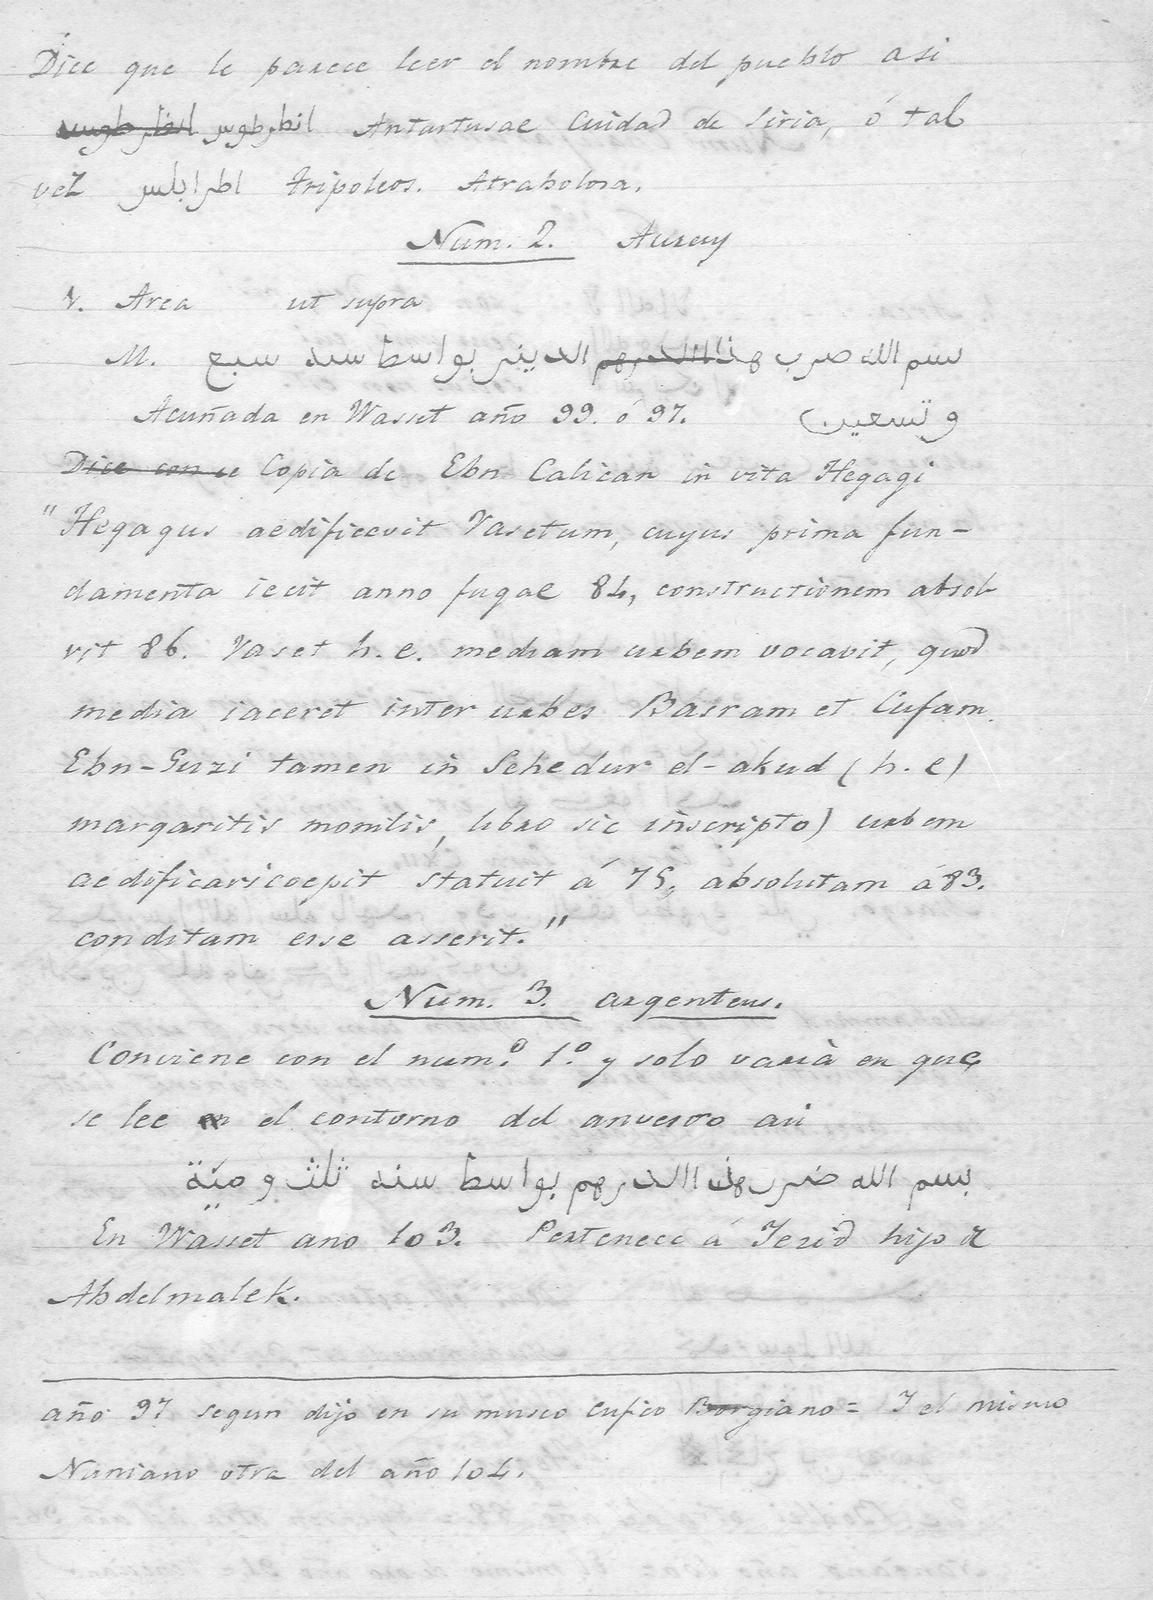 Dice que le parece leer el nombre del pueblo asi
انطرطوس Antartusae Cuidad de Siria, ó tal
vez اطرابلس tripoleos. Atrabolosa.
Num. 2. Aureuy
V. Area ut supra
M. بسم الله صرب هذا الدرهم الدينر بواسط سنه سبع
Acuñada en Wasset año 99. ó 97. وتسعين
Dice con se Copia de Ebn Calican in vita Hegagi
"Hegagus aedificavit Vasetum, cuyus prima fun-
damenta iecit anno fugae 84, constructionem absol-
vit 86. Vaset h. e. mediam urbem vocavit, quod
media iaceret inter urbes Basram et Cufam.
Ebn-Guzi tamen in Schedur el-akud (h. e)
margaritis monilis, libro sic inscripto) urbem
aedificari coepit statuit á 75, absolutam á 83.
conditam esse asserit."
Num. 3. argenteus.
Conviene con el num.º 1.º y solo varià en que
se lee en el contorno del anverso asi
بسم الله ضرب هذا الدرهم بواسط سنه ثلث و مئة
En Wasset ano 103. Pertenece á Jezid hijo de
Abdelmalek.
año 97 segun dijo en su museo cufico Borgiano = I el mismo
Naniano otra del año 104.